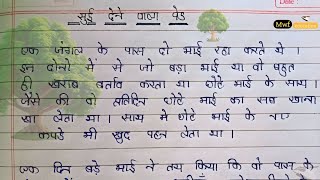 Date :
Mwf
सुई देने वाला पेड़
एक जंगल के पास दो भाई रहा करते थे ।
इन दोनो में से जो बड़ा भाई था वो बहुत
ही खराब बर्ताव करता था छोटे भाई के साथ ।
जैसे की वो प्रतिदिन छोटे भाई का सब खाना
खा लेता था । साथ मे छोटे भाई के नए
कपडे भी खुद पहन लेता था ।
एक दिन बड़े भाई ने तय किया कि वो पास के